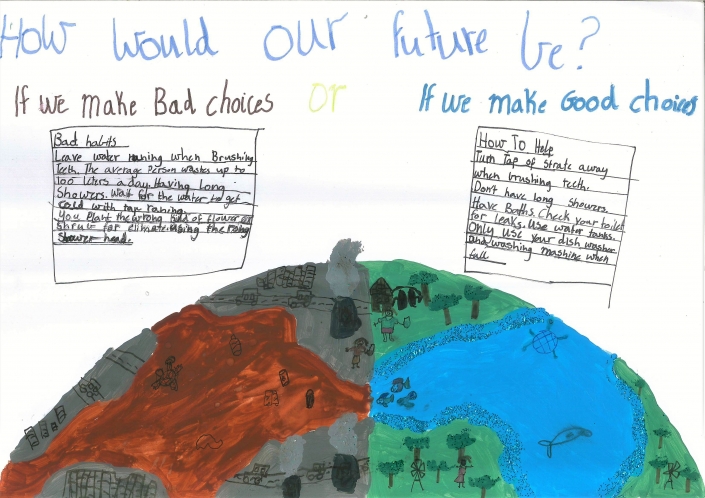 How would our future be?
If we make Bad choices or If we make Good choices
Bad habits
Leave water runing when Brushing
Teeth. The average Person wasts up to
100 liters a day. Having long
Showers. Wait for the water to get
cold with tap runing.
You Plant the wrong kind of flower or
shrub for climate. Using the rong
shower head.
How To Help
Turn Tap of strate away
when brushing teeth.
Don't have long showers.
Have Baths. Check your toilet
for leaks. Use water tanks.
Only use your dish washer
and washing mashine when
full